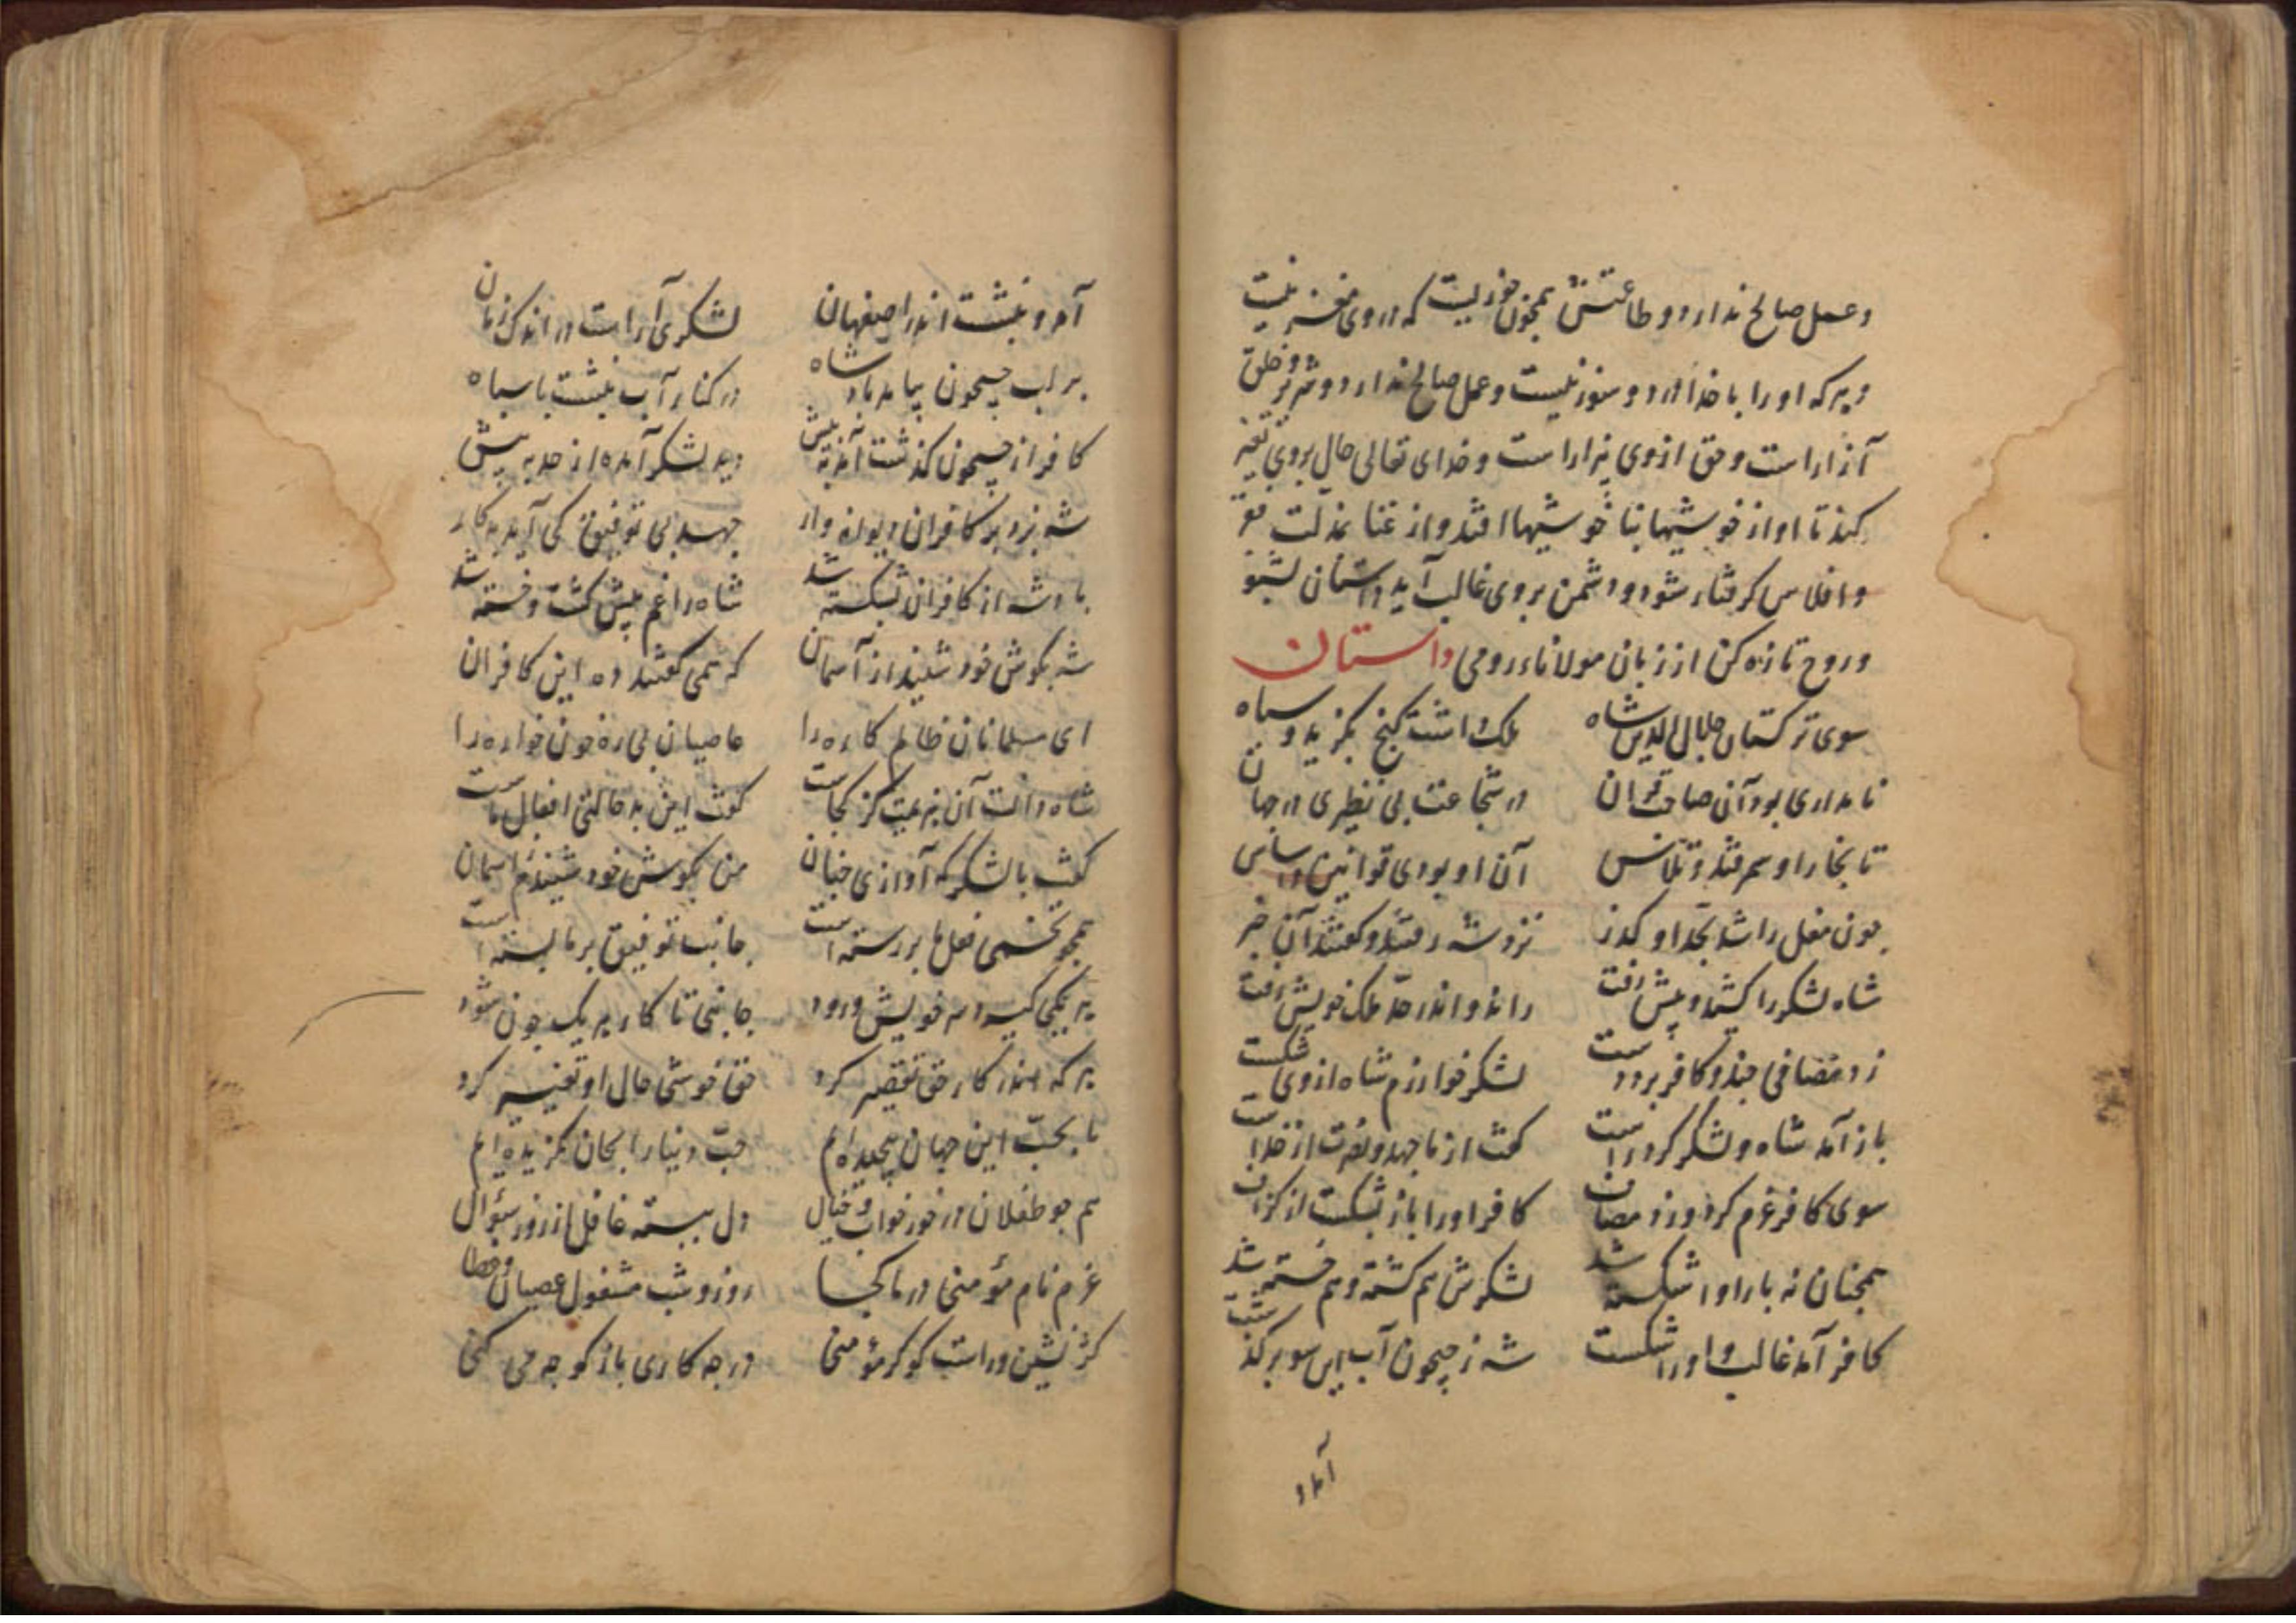 وعمل صالح ندارد و طاعتش همچون جوزیست که در وی مغز نیست
و هر که او را با خدا درد و سوز نیست و عمل صالح ندارد و شر بر خلق
آزار است و حق از وی بیزار است و خدای تعالی حال بر وی تغیر
کند تا او از خوشیها بنا خوشیها افتد و از غنا بمذلت فقر
و افلاس گرفتار شود و دشمن بر وی غالب آید داستان بشنو
و روح تازه کن از زبان مولاناء رومی داستان
سوی ترکستان جلال الدین شاه ملک داشت گنج بگزید و سپاه
نامداری بود آن صاحب قران در شجاعت بی نظیری در جهان
تا بخارا و سمرقند و تلاس آن او بودی قوانین و اساس
چون مغل را شد بحد او گذر نزد شه رفتند و گفتند آن خبر
شاه لشکر را کشید و پیش رفت راند و اندر حد ملک خویش رفت
زد مصافی چند و کافر برد دست لشکر خوارزم شاه از وی شکست
باز آمد شاه و لشکر کرد راست گفت از ما جهد و نصرت از خداست
سوی کافر عزم کرد و زد مصاف کافر او را باز بشکست از گزاف
همچنان نه بار او اشکسته شد لشکرش هم کشته و هم خسته شد
کافر آمد غالب و او را شکست شه ز جیحون آب این سو بر گذشت
آمد و
آمد و بنشست اندر اصفهان لشکری آراست در اندک زمان
بر لب جیحون بیامد باد شاه در کنار آب بنشست با سپاه
کافر از جیحون گذشت آمد به پیش دید لشکر آمده از حد به بیش
شه بزد بر کافران دیوانه وار جهد بی توفیق کی آید به کار
بادشه از کافران بشکسته شد شاه را غم بیش گشت و خسته شد
شه بگوش خود شنید از آسمان که همی گفتند ده این کافران
ای مسلمانان ظالم کاره را عاصیان بی ره خون خواره را
شاه دانست آن هزیمت کز کجاست گفت این بد حالتی افعال ماست
گفت با لشکر که آوازی چنان من بگوش خود شنیدم ز اسمان
همچو تخمی فعل ما بر رسته است جانب توفیق بر ما بسته است
هر یکی گیرد سر خویش و رود جا بجی تا کار هر یک چون شود
هر که اندر کار حق تقصیر کرد حق خوشی حال او تغییر کرد
ما بحب این جهان پیچیده ایم حب دنیا را بجان بگزیده ایم
هم چو طفلان در خور خواب و خیال دل ببسته غافل از روز سؤال
عزم نام مؤمنی در ما کجا روز و شب مشغول عصیان و خطا
کژ نشین و راست گو گر مؤمنی در چه کاری باز گو چه می کنی